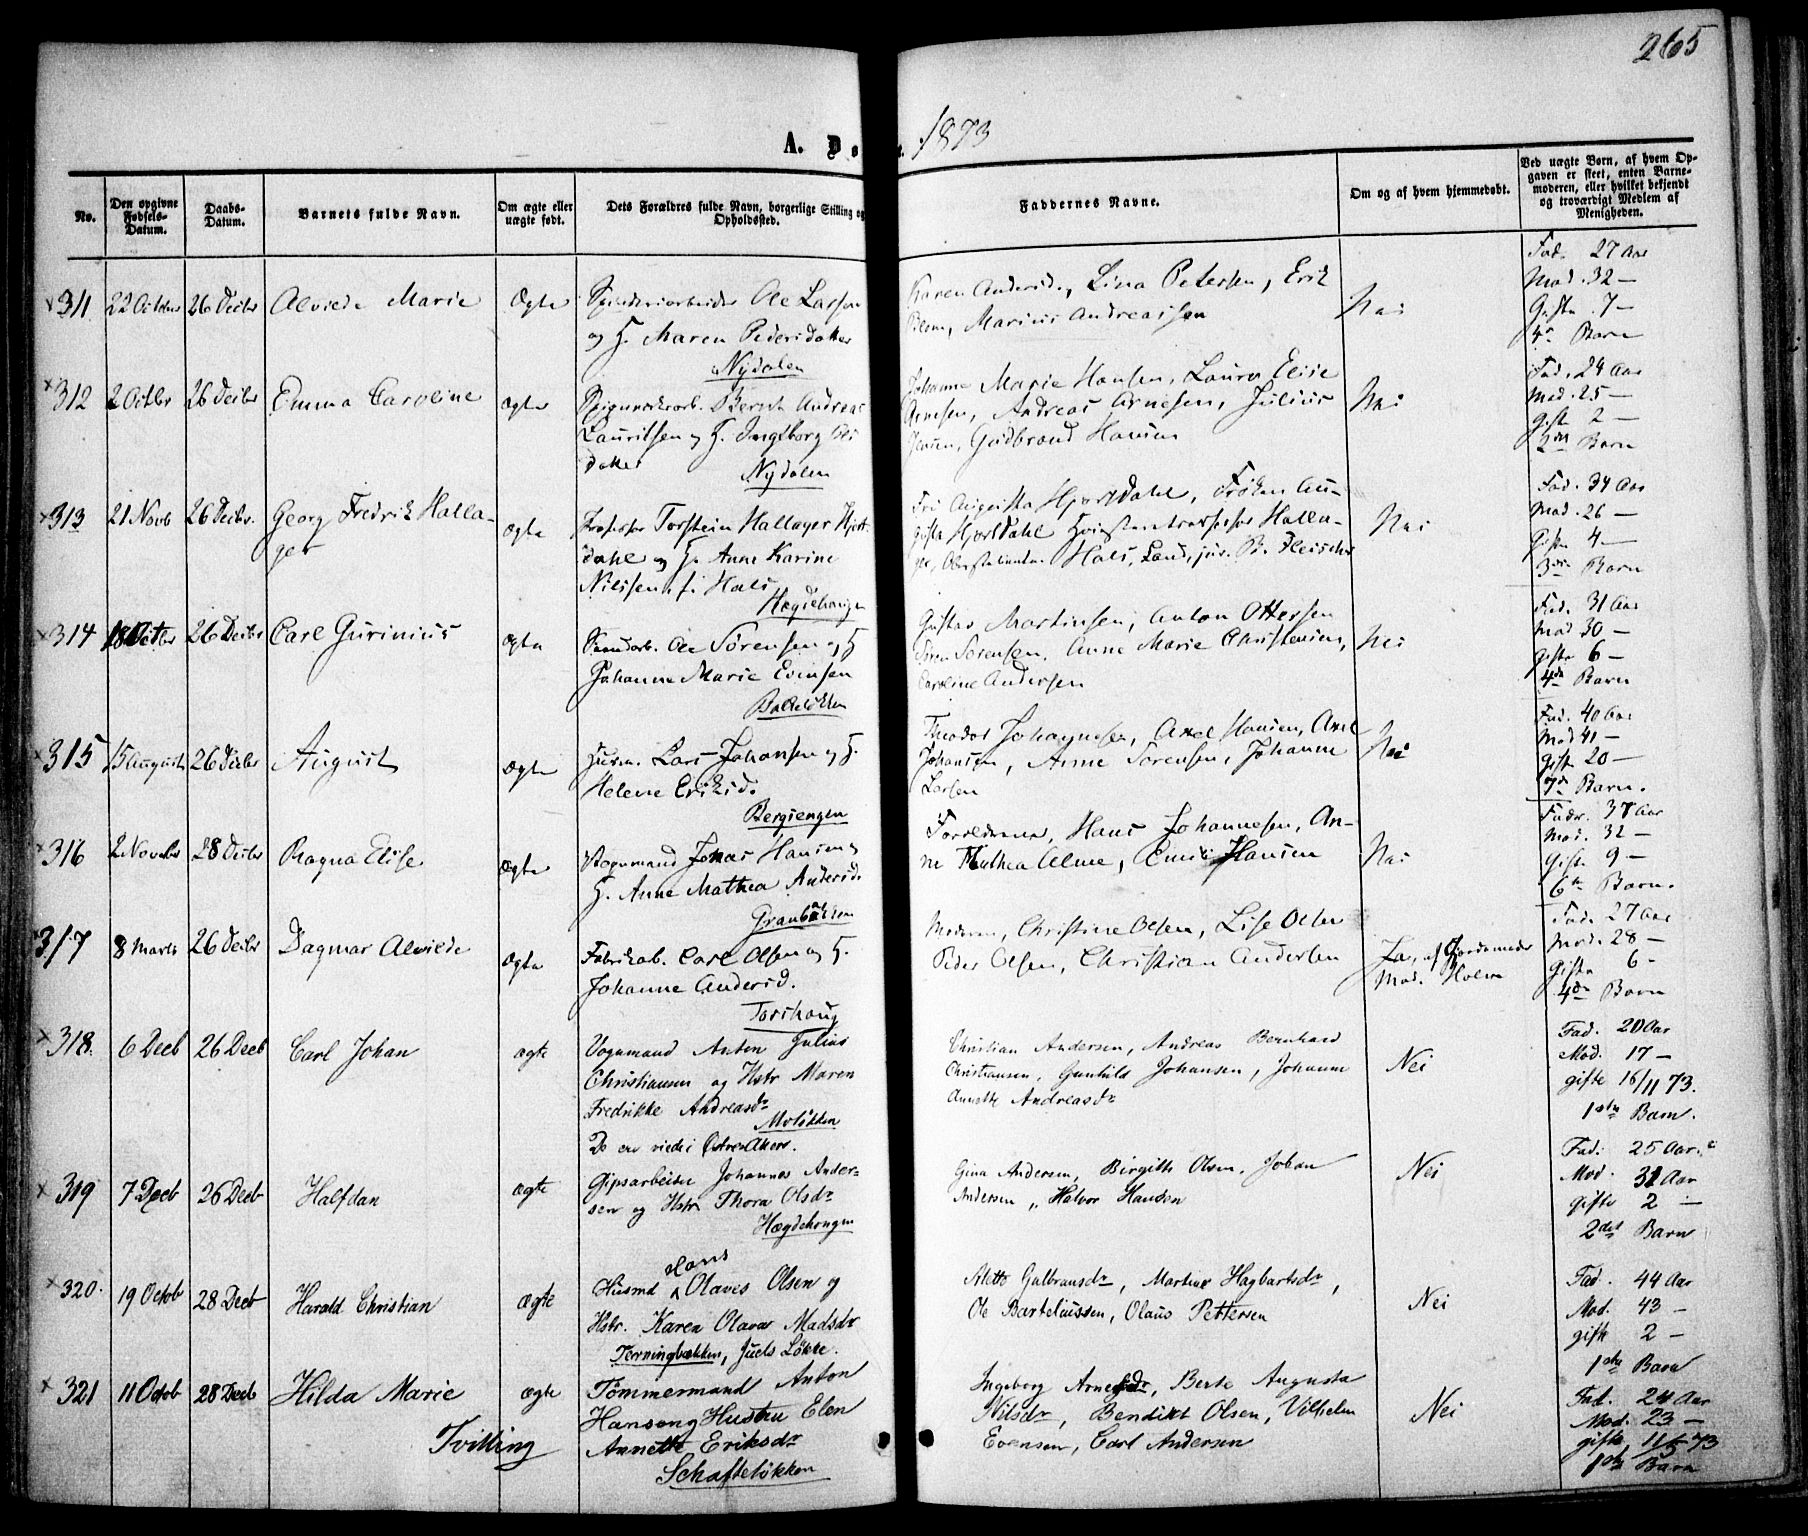 265
A. Dø 1873
No.
Den opgivne Fødsels-Datum.
Daabs-Datum.
Barnets fulde Navn.
Om ægte eller uægte født.
Dets Forældres fulde Navn, borgerlige Stilling og Opholdssted.
Faddernes Navne.
Om og af hvem hjemmedøbt.
Ved uægte Børn, af hvem Opgaven er skeet, enten Barnemoderen, eller hvilket bekjendt og troværdigt Medlem af Menigheden.
311 22 Octbr 26 Decbr Alviede Marie Ægte Spinderiarbeider Ole Larsen
og H. Maren Pedersdatter
Nydalen
Karen Andersd., Lina Petersen, Erik
Blom, Marius Andreassen
Nei
Fad. 27 Aar
Mod. 32 —
Gifte 7 —
4de Barn
312 2 Octbr 26 Decbr Emma Caroline Ægte Bernt Andreas
Lauritsen og H. Ingeborg
datter
Nydalen
Johanne Marie Hansen, Laura Elise
Arnesen, Andreas Arnesen, Julius
Gudbrand Hansen
Nei
Fad. 24 Aar
Mod. 25 —
gift 2 —
2det Barn
313 21 Novb 26 Decbr. Georg Fredrik Halla-
ger
Ægte Professor Torstein Hallager Hjort-
dahl og H. Anne Karine
Nilssen f. Hals
Hægdehaugen
Fru Augusta Hjortdahl, Frøken Au-
gusta Hjortdahl Halla-
ger, Hals, Fleischer
Nei
Fad. 34 Aar
Mod. 26 —
Gifte 4 —
3die Barn
314 18 Octbr 26 Decbr Carl Gurinius Ægte Ole Sørensen og H
Johanne Marie Evensen
Balkeløkken
Gustav Martinsen, Anton Ottersen
Søren Sørensen, Anne Marie Christensen,
Caroline Andersen
Nei
Fad. 31 Aar
Mod 30 —
gifte 6 —
4de Barn
315 15 August 26 Decbr August Ægte Lars Johansen og H.
Helene Eriksd.
Bergsengen
Theodor Johannesen, Axel Hansen, Axel
Johansen, Anne Sørensen, Johanne
Larsen
Nei
Fad. 40 Aar
Mod 41 —
gift 20 —
Barn.
316 2 Novbr 28 Decbr Ragna Elise Ægte Vognmand Jonas Hansen og
H. Anne Mathea Andersd.
Granbækken
Forældrene, Hans Johannesen, An-
ne Mathea Alme, Emil Hansen
Nei
Fader. 37 Aar
Mod. 32 —
Gift 9 —
6te Barn.
317 8 Marts 26 Decbr Dagmar Alviede Ægte Fabrikab. Carl Olsen og H.
Johanne Andersd.
Torshaug
Moderen, Christine Olsen, Lise Olsen
Peder Olsen, Christian Andersen
Ja, af Gjordemoder
Mad. Holm
Fad. 27 Aar
Mod. 28 —
Gifte 6 —
4de Barn
318. 6 Decb 26 Decb Carl Johan ægte Vognmand Anton Julius
Christiansen og Hstr Maren
Fredrikke Andreasdr
Moløkken
De ere viede i Østre Aker.
Christian Andersen, Andreas Bernhard
Christiansen, Gunhild Johansen, Johanne
Annette Andreasdr
Nei
Fad. 20 Aar
Mod. 17 —
gifte 16/11 73.
1ste Barn.
319 7 Decb 26 Decb Halfdan ægte Gipsarbeider Johannes Ander-
sen og Hstr Thora Olsdr
Hægdehougen
Gina Andersen, Birgitte Olsen, Johan
Andersen, Halvor Hansen
Nei
Fad. 25 Aar.
Mod. 32 Aar
gifte 2 —
2det Barn
320. 19 Octob 28 Decb Harald Christian ægte Husmd Hans Olaves Olsen og
Hstr. Karen Olava Madsdr
Terningbækken, Juels Løkke.
Alette Gulbransdr, Martine Hagbartsdr,
Ole Barteliussen, Olaus Pettersen
Nei
Fad. 44 Aar
Mod. 43 —
gift 2 —
1ste Barn
321 11 Octob 28 Decb Hilda Marie ægte Tømmermand Anton
Tvilling
Hansen og Hustru Elen
Annette Eriksdr
Schafteløkken
Ingeborg Arnesdr, Berte Augusta
Nilsdr, Bendikt Olsen, Vilhelm
Evensen, Carl Andersen
Nei
Fad. 24 Aar
Mod. 23 —
gifte 11/5 73
1ste Barn